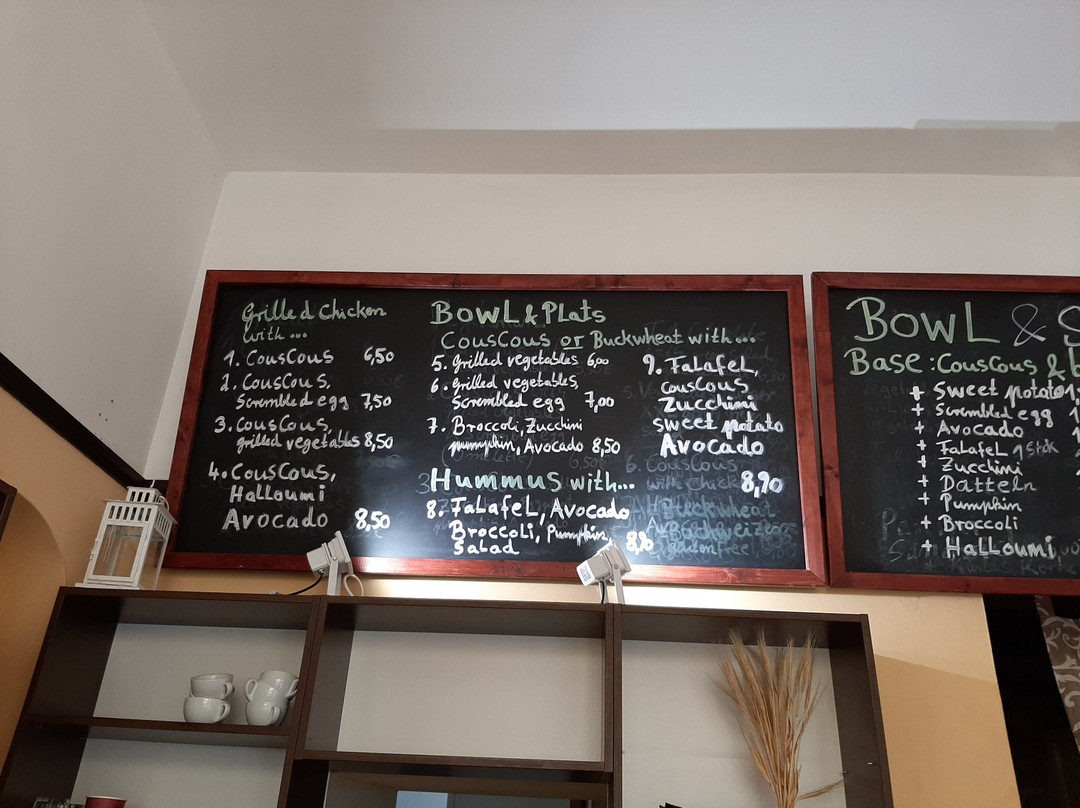 Grilled Chicken
with...
1. Couscous 6,50
2. Couscous,
Scrembled egg 7,50
3. Couscous,
grilled vegetables 8,50
4. Couscous,
Halloumi
Avocado 8,50
Bowl & Plats
Couscous or Buckwheat with...
5. Grilled vegetables 6,00
6. Grilled vegetables,
Scrembled egg 7,00
7. Broccoli, Zucchini
pumpkin, Avocado 8,50
Hummus with...
8. Falafel, Avocado
Broccoli, Pumpkin,
Salad 8,90
9. Falafel,
couscous
Zucchini
sweet potato
Avocado
8,90
Bowl &
Base: Couscous &
+ Sweet potato
+ Scrembled egg
+ Avocado
+ Falafel 1 Stck
+ Zucchini
+ Datteln
+ Pumpkin
+ Broccoli
+ Halloumi